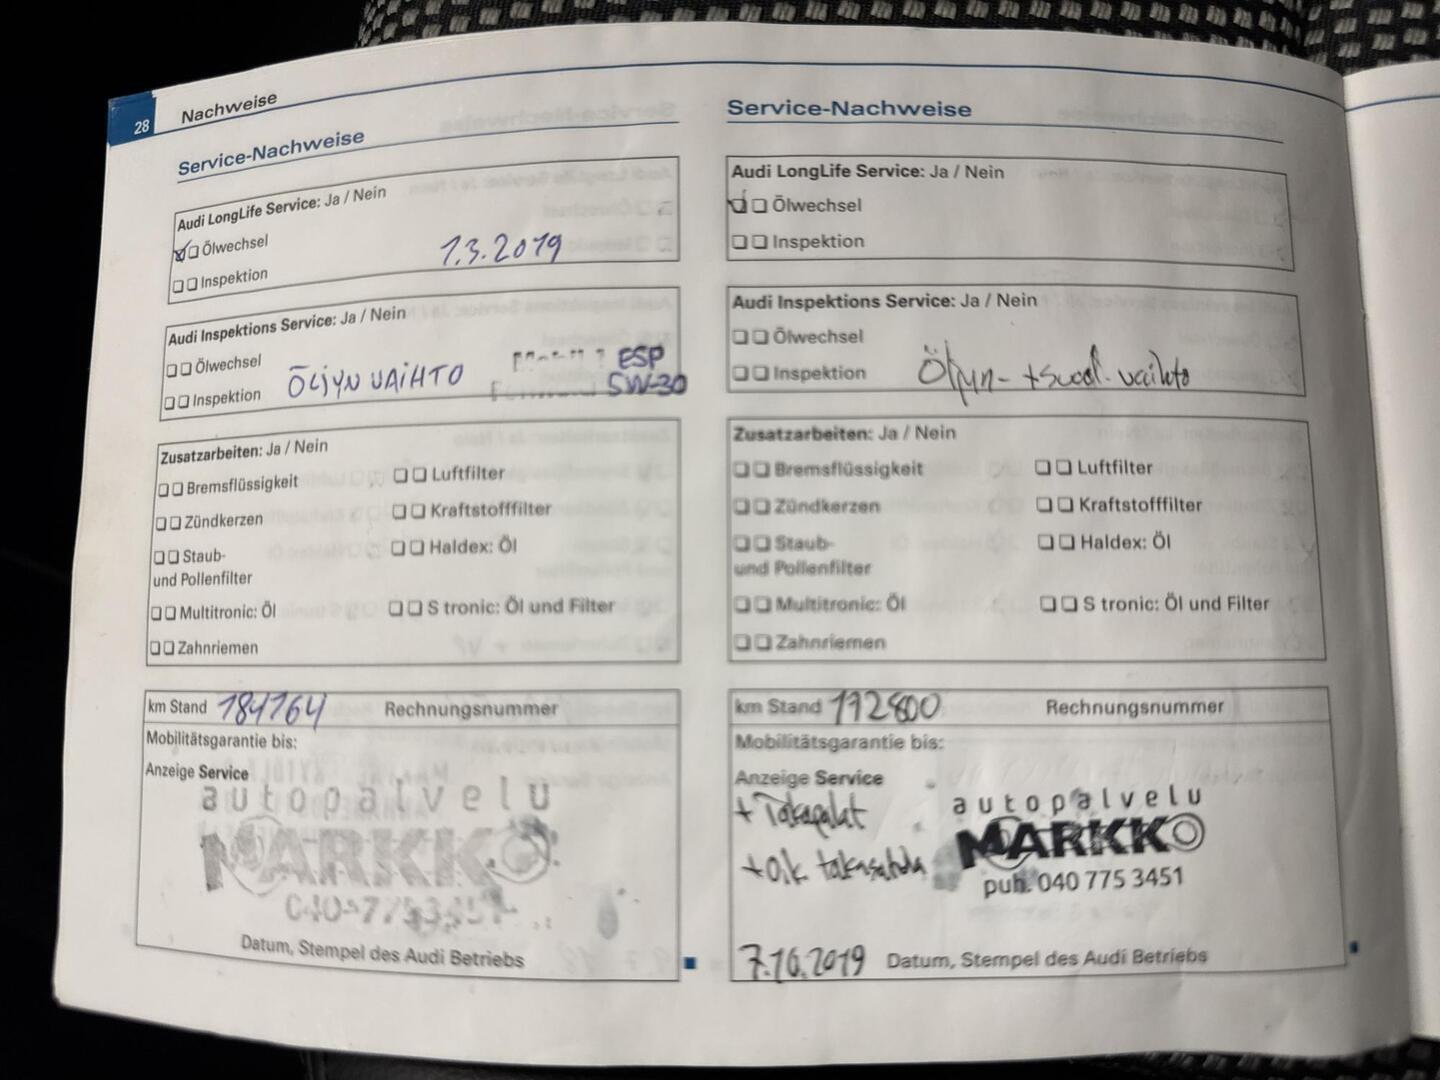 28
Nachweise
Service-Nachweise
Audi LongLife Service: Ja / Nein
Ölwechsel
1.3.2019
Inspektion
Audi Inspektions Service: Ja / Nein
Ölwechsel
ESP
Inspektion
ÖLJYN VAIHTO
5W-30
Zusatzarbeiten: Ja / Nein
Bremsflüssigkeit
Luftfilter
Zündkerzen
Kraftstofffilter
Staub-
und Pollenfilter
Haldex: Öl
Multitronic: Öl
S tronic: Öl und Filter
Zahnriemen
km Stand 184764
Rechnungsnummer
Mobilitätsgarantie bis:
Anzeige Service
autopalvelu
MARKKO
Datum, Stempel des Audi Betriebs
Service-Nachweise
Audi LongLife Service: Ja / Nein
Ölwechsel
Inspektion
Audi Inspektions Service: Ja / Nein
Ölwechsel
Inspektion
Öljyn- +suod. vaihto
Zusatzarbeiten: Ja / Nein
Bremsflüssigkeit
Luftfilter
Zündkerzen
Kraftstofffilter
Staub-
und Pollenfilter
Haldex: Öl
Multitronic: Öl
S tronic: Öl und Filter
Zahnriemen
km Stand 192800
Rechnungsnummer
Mobilitätsgarantie bis:
Anzeige Service
+ Takapalat
+ oik takasatula
autopalvelu
MARKKO
puh. 040 775 3451
7.10.2019 Datum, Stempel des Audi Betriebs